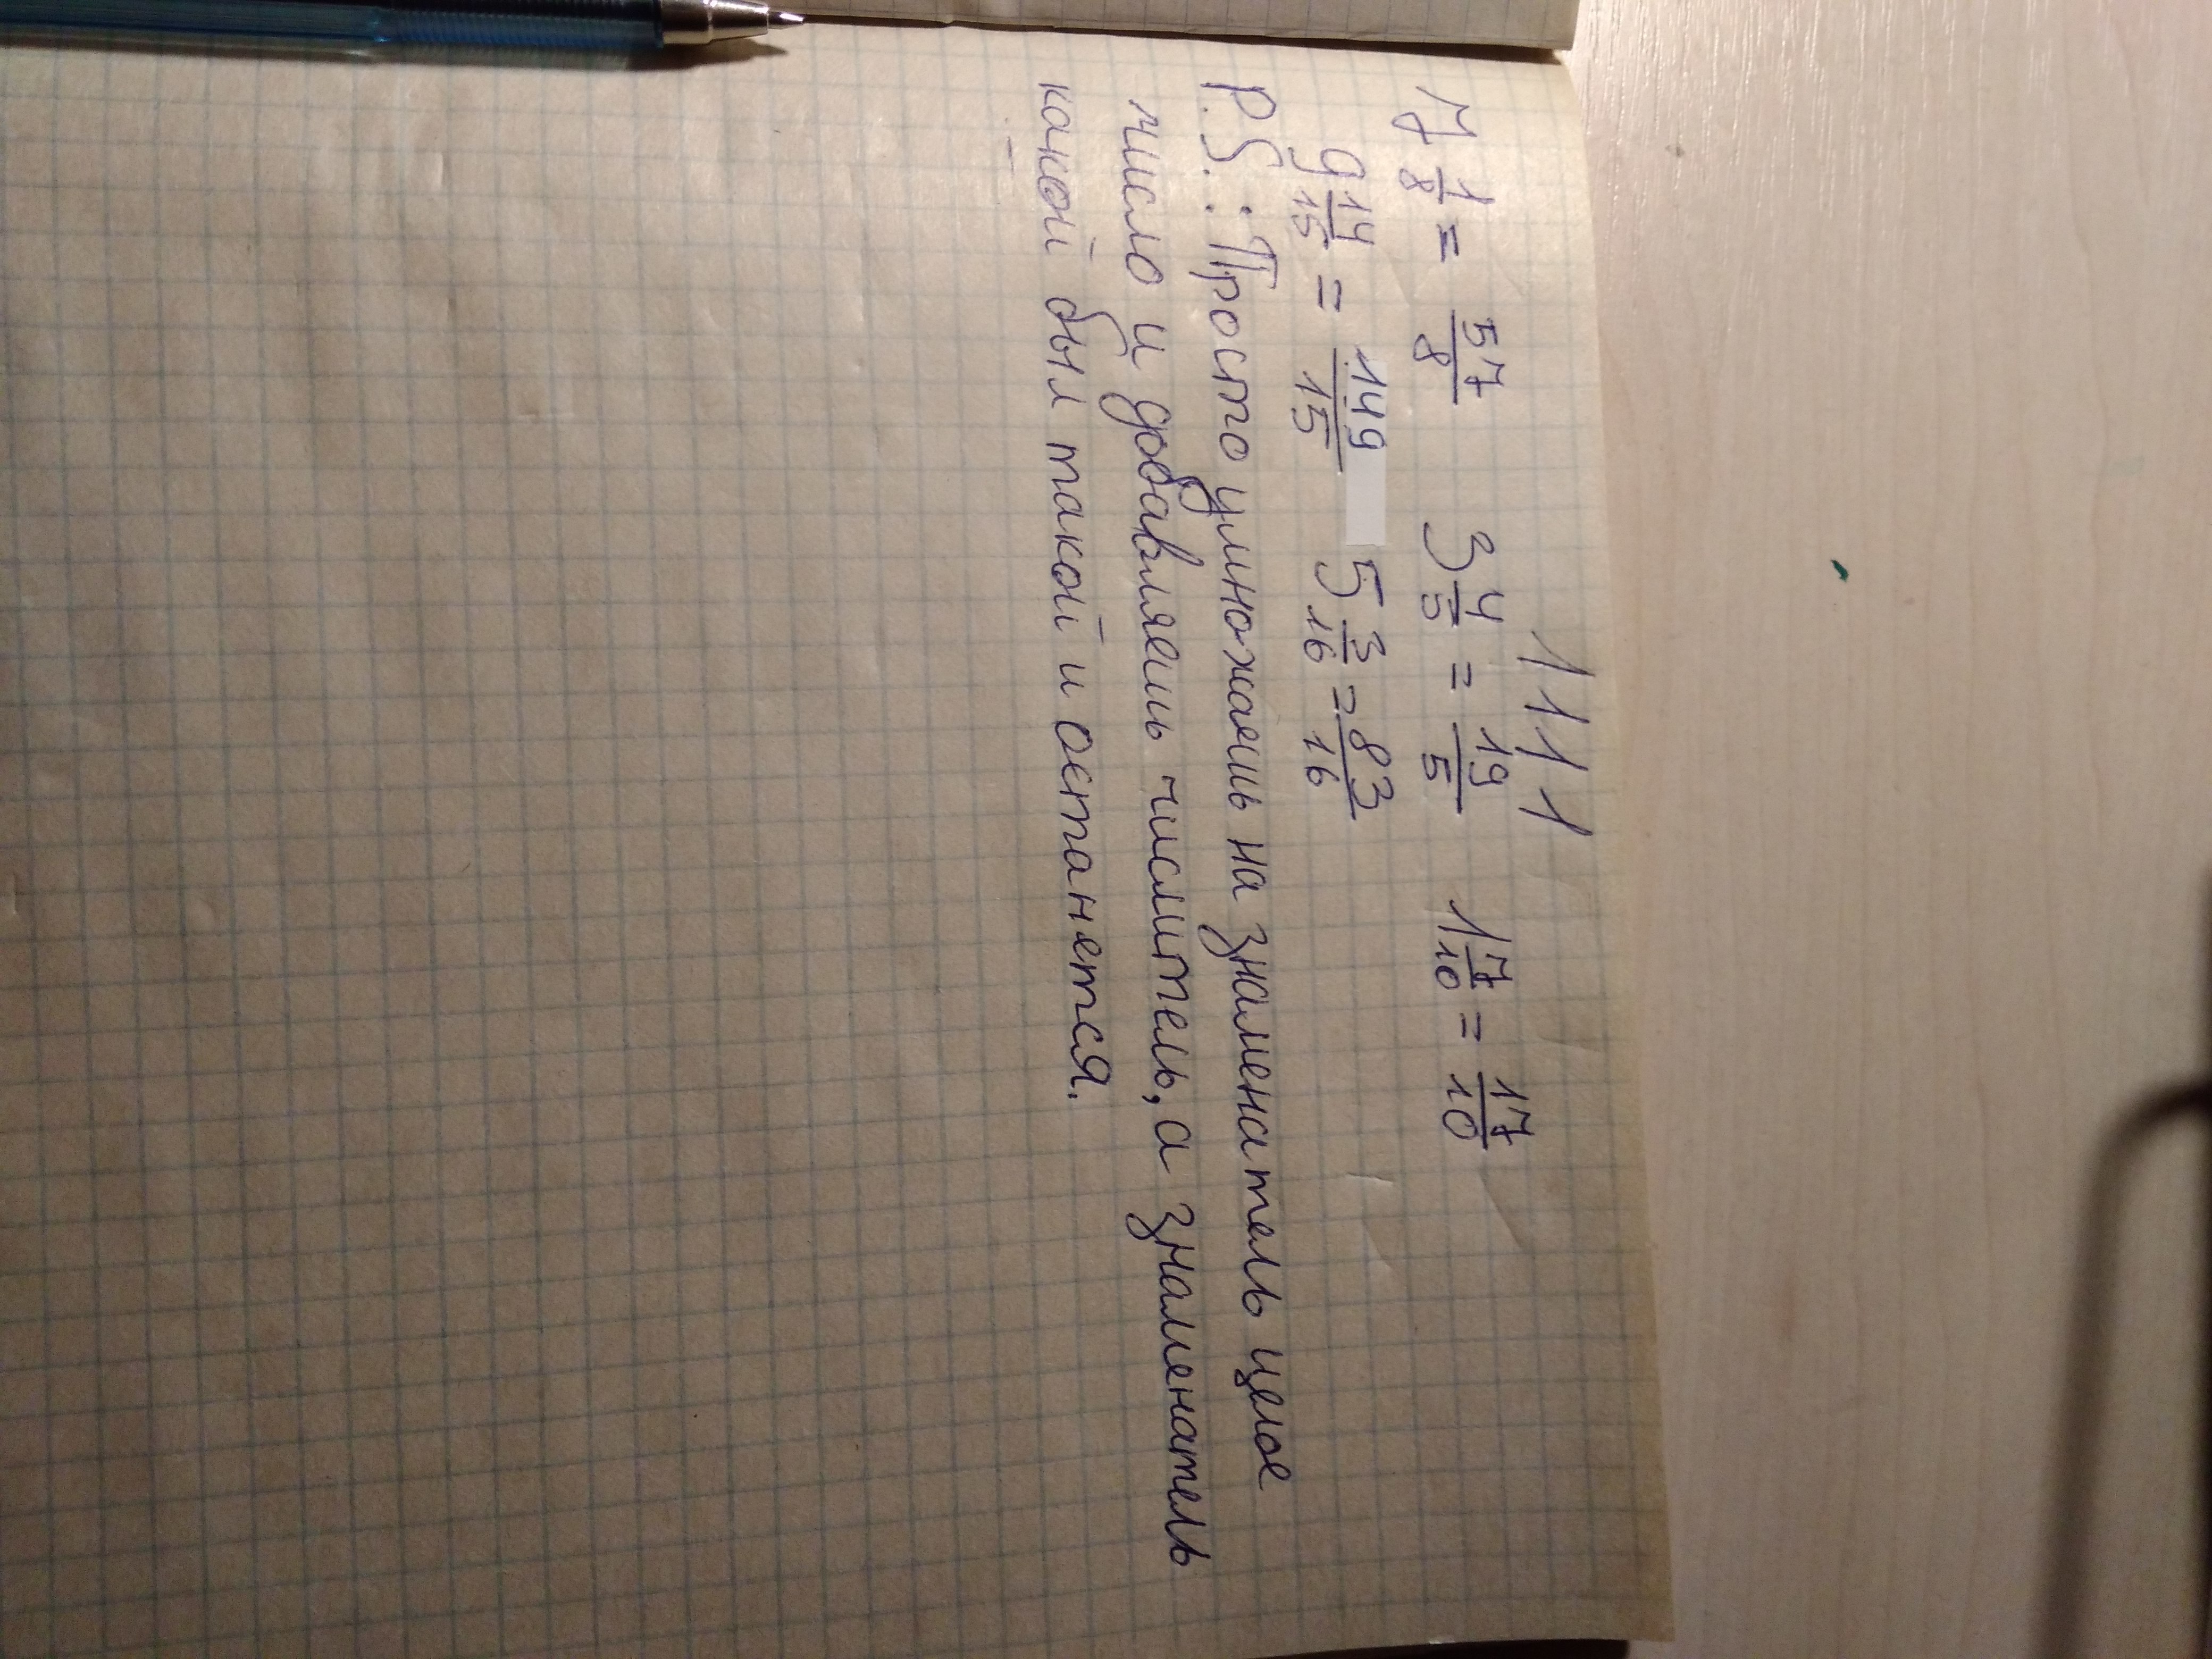 1111
7 1/8 = 57/8 3 4/5 = 19/5 1 7/10 = 17/10
9 14/15 = 149/15 5 3/16 = 83/16
P.S.: Просто умножаешь на знаменатель целое
число и добавляешь числитель, а знаменатель
какой был такой и останется.